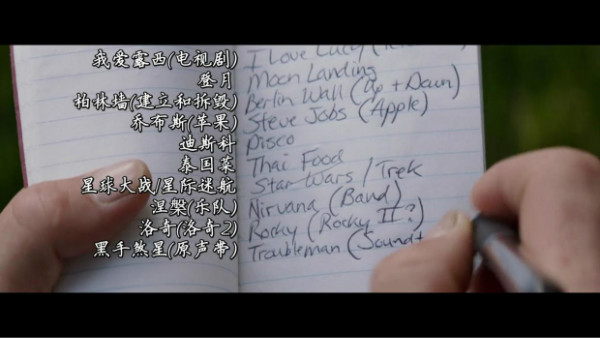 我爱露西(电视剧)
I Love Lucy (
登月
Moon Landing
柏林墙(建立和拆毁)
Berlin Wall (Up + Down)
乔布斯(苹果)
Steve Jobs (Apple)
迪斯科
Disco
泰国菜
Thai Food
星球大战/星际迷航
Star Wars / Trek
涅槃(乐队)
Nirvana (Band)
洛奇(洛奇2)
Rocky (Rocky II?)
黑手煞星(原声带)
Troubleman (Soundt